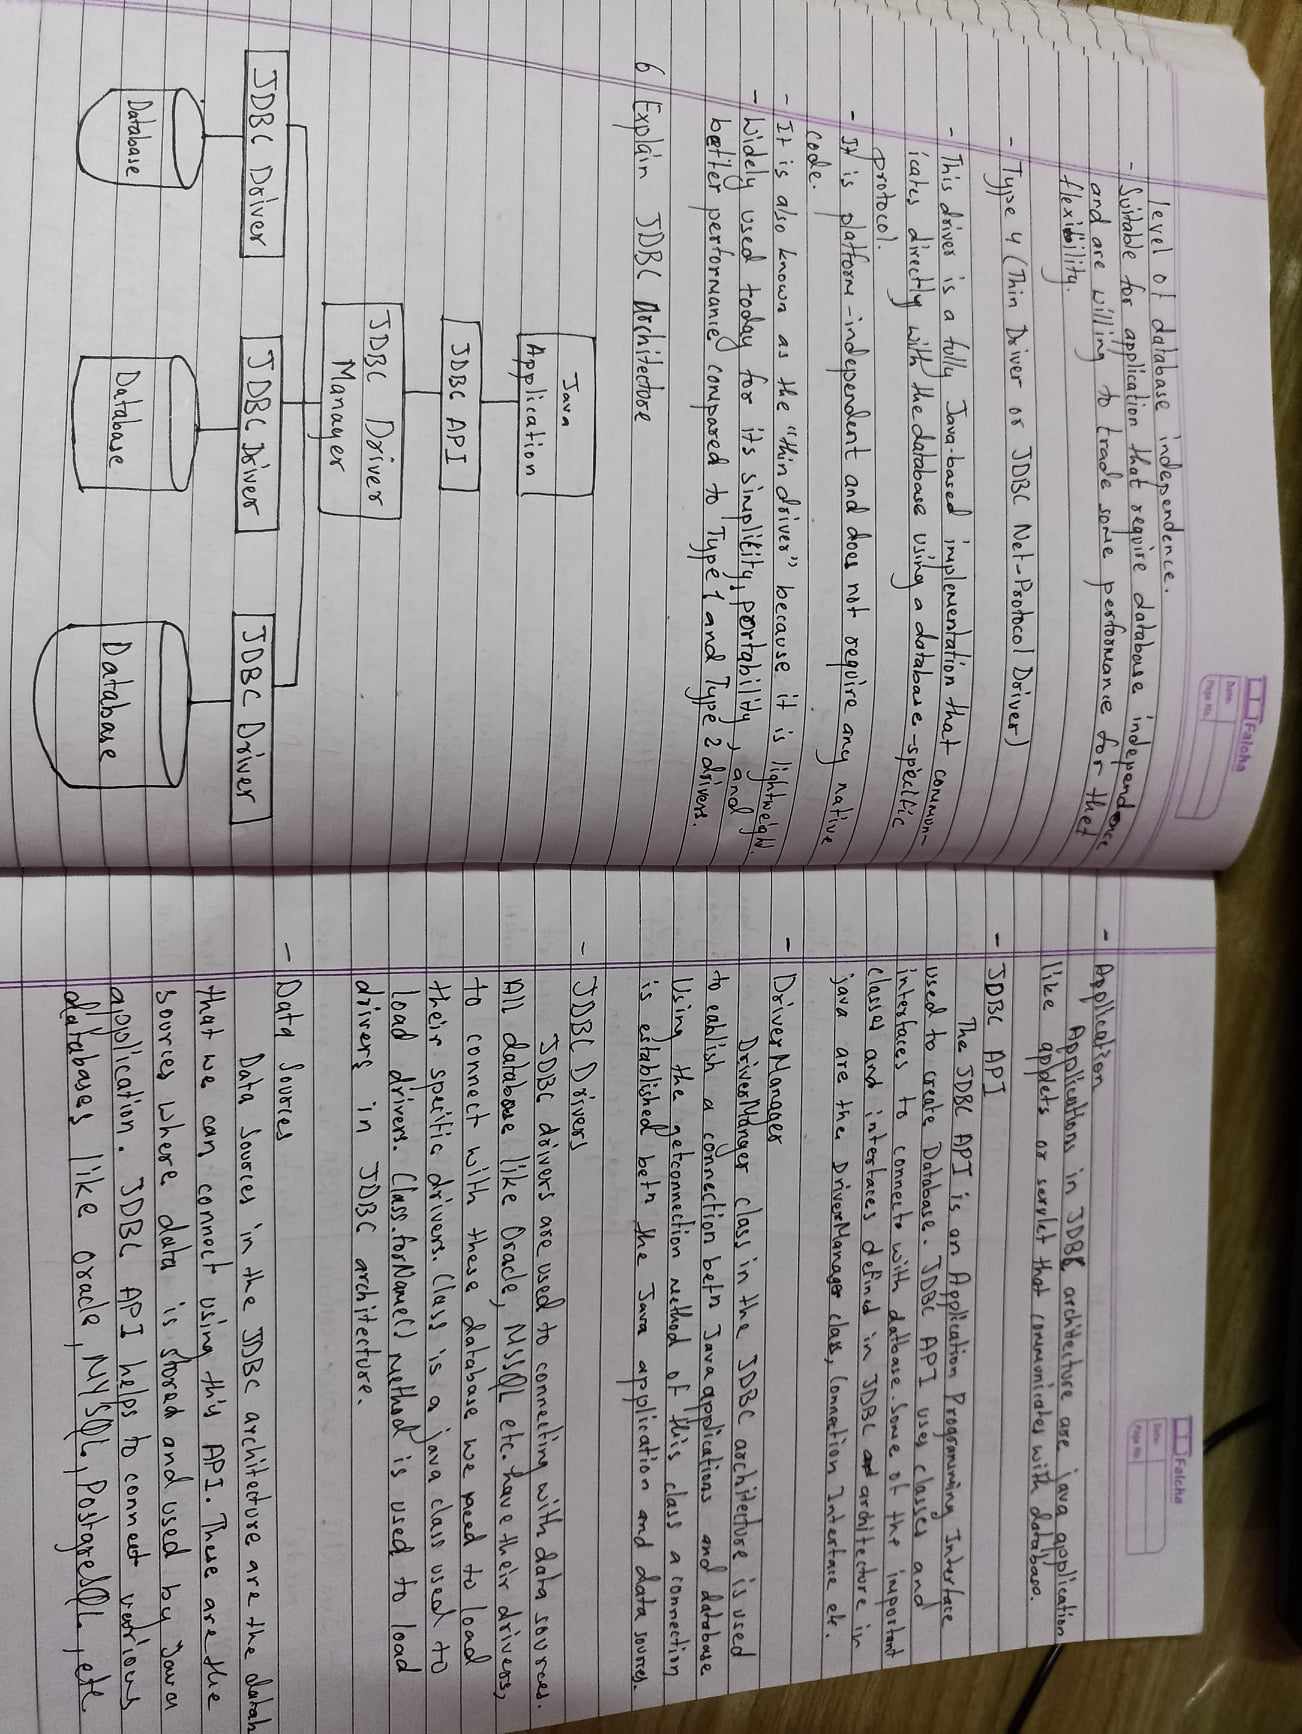 Falcha
Date:
Page No.
level of database independence.
- Suitable for application that require database independence
and are willing to trade some performance for thet
flexibility.
- Type 4 (Thin Driver or JDBC Net-Protocol Driver)
- This driver is a fully Java-based implementation that commun-
icates directly with the database using a database-specific
protocol.
- It is platform-independent and does not require any native
code.
- It is also known as the "thin driver" because it is lightweight.
- Widely used today for its simplicity, portability, and
better performance compared to Type 1 and Type 2 drivers.
6 Explain JDBC Architecture
Java
Application
JDBC API
JDBC Driver
Manager
JDBC Driver JDBC Driver JDBC Driver
Database Database Database
Falcha
Date:
Page No.
- Application
Applications in JDBC architecture are java application
like applets or servlet that communicates with database.
- JDBC API
The JDBC API is an Application Programming Interface
used to create Database. JDBC API uses classes and
interfaces to connects with datbase. Some of the important
classes and interfaces defind in JDBC architecture in
java are the DriverManager class, Connection Interface etc.
- DriverManager
DriverManger class in the JDBC architecture is used
to eablish a connection betn Java applications and database
Using the getconnection method of this class a connection
is established betn the Java application and data sources.
- JDBC Drivers
JDBC drivers are used to connecting with data sources.
All database like Oracle, MSSQL etc. have their drivers,
to connect with these database we need to load
their specific drivers. Class is a java class used to
load drivers. Class.forName() method is used to load
drivers in JDBC architecture.
- Data Sources
Data Sources in the JDBC architecture are the datab
that we can connect using this API. These are the
sources where data is stored and used by Java
application. JDBC API helps to connect various
databases like Oracle, MYSQL, PostgreSQL, etc